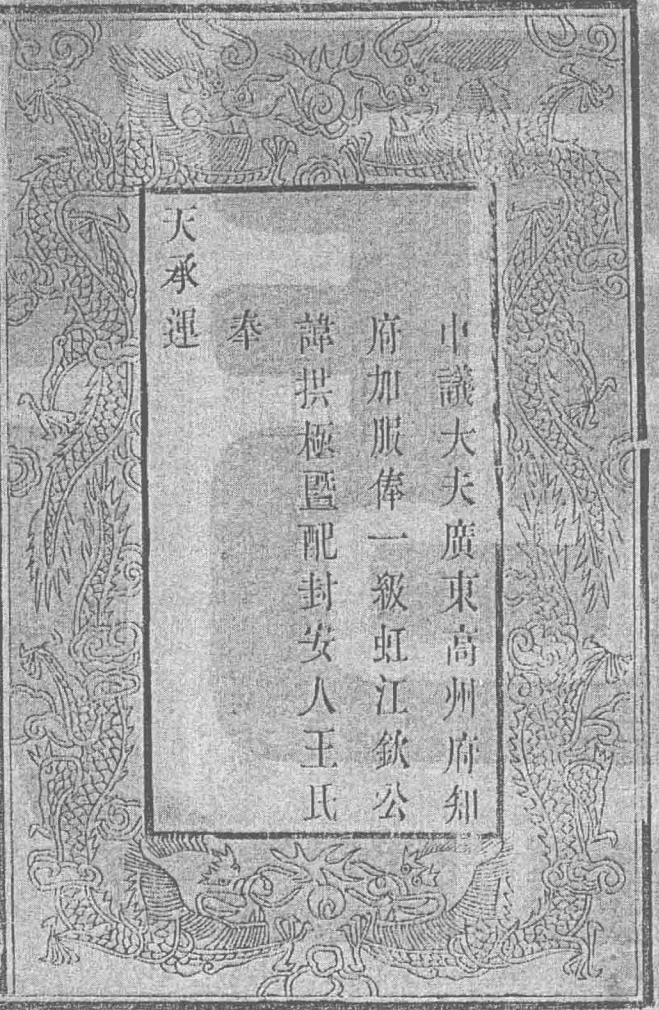 中議大夫廣東高州府知
府加服俸一級虹江欽公
諱拱極暨配封安人王氏
奉
天承運